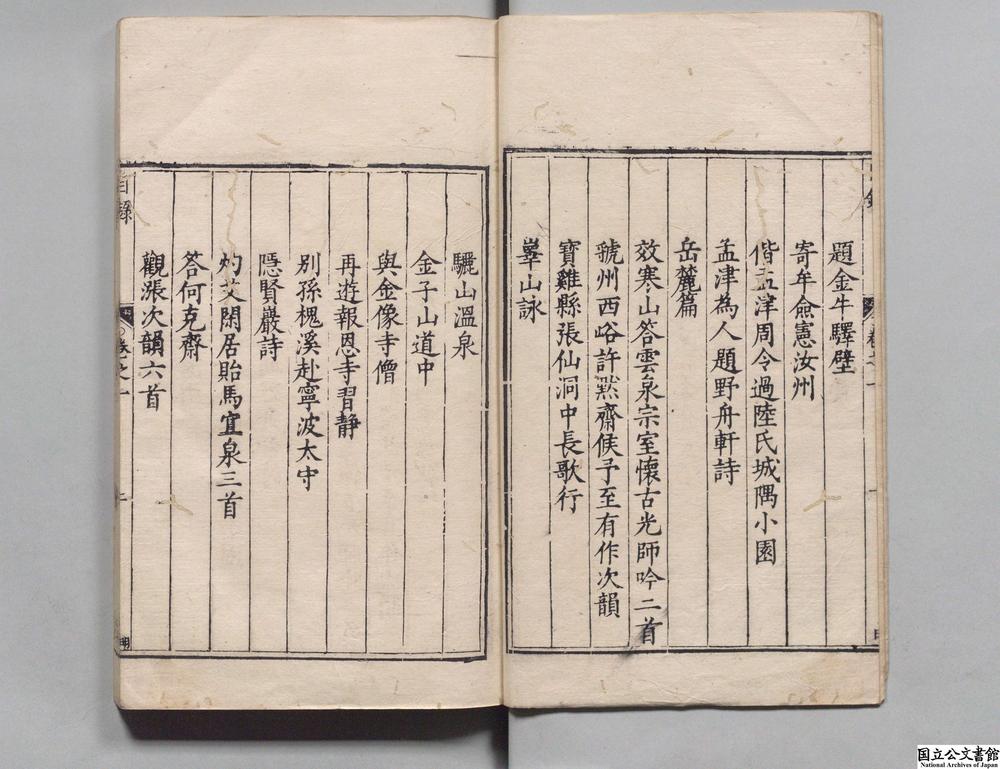 題金牛驛壁
寄牟僉憲汝州
偕孟津周令過陸氏城隅小園
孟津為人題野舟軒詩
岳麓篇
效寒山答雲泉宗室懷古光師吟二首
虢州西峪許黙齋候予至有作次韻
寶雞縣張仙洞中長歌行
崋山詠
驪山溫泉
金子山道中
與金像寺僧
再遊報恩寺習静
別孫槐溪赴寧波太守
隱賢巖詩
灼艾閑居貽馬宜泉三首
答何克齋
觀漲次韻六首
目錄
卷之一
国立公文書館
National Archives of Japan